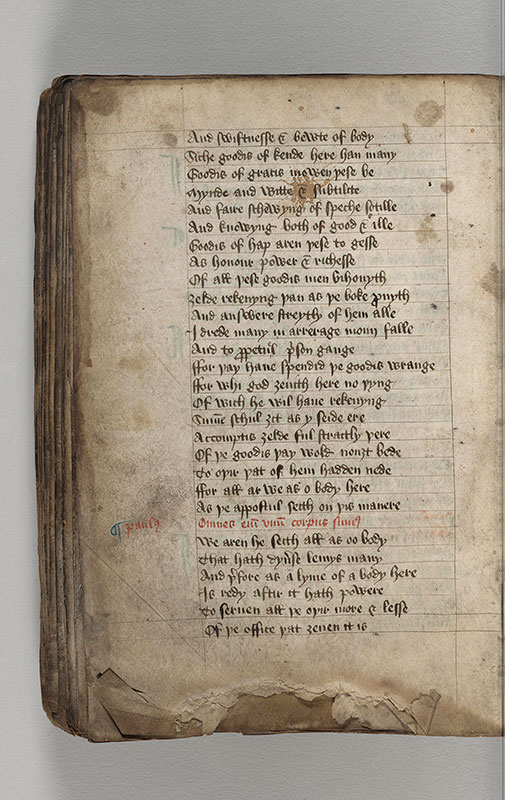 And swiftnesse & bewte of body
Siche goodis of kende here han many
Goodis of gratis mowen þese be
Mynde and witte & subtilite
And faire schewyng of speche sotille
And knowyng both of good & ille
Goodis of hap aren þese to gesse
As honour power & richesse
Of all þese goodis men bihouyth
Zelde rekenyng þan as þe boke prouyth
And answere streyth of hem alle
I drede many in arrerage moun falle
And to ꝑpetuel pͥson gange
ffor þay haue spendid þe goodis wrange
ffor whi god zeuith here no þyng
Of wich he wil haue rekenyng
Sume schul zit as y seide ere
Accomptis zelde ful straitly þere
Of þe goodis þay wold nouzt bede
To oþir þat of hem hadden nede
ffor all ar we as o body here
As þe appostul seith on þis manere
¶ paulꝯ Omnes eni vnu corpus sumꝯ
We aren he seith all as oo body
That hath dyuse lemys many
And þfore as a lyme of a body here
Is redy aftir it hath powere
To seruen all þe oþir more & lesse
Of þe office þat zeuen it is